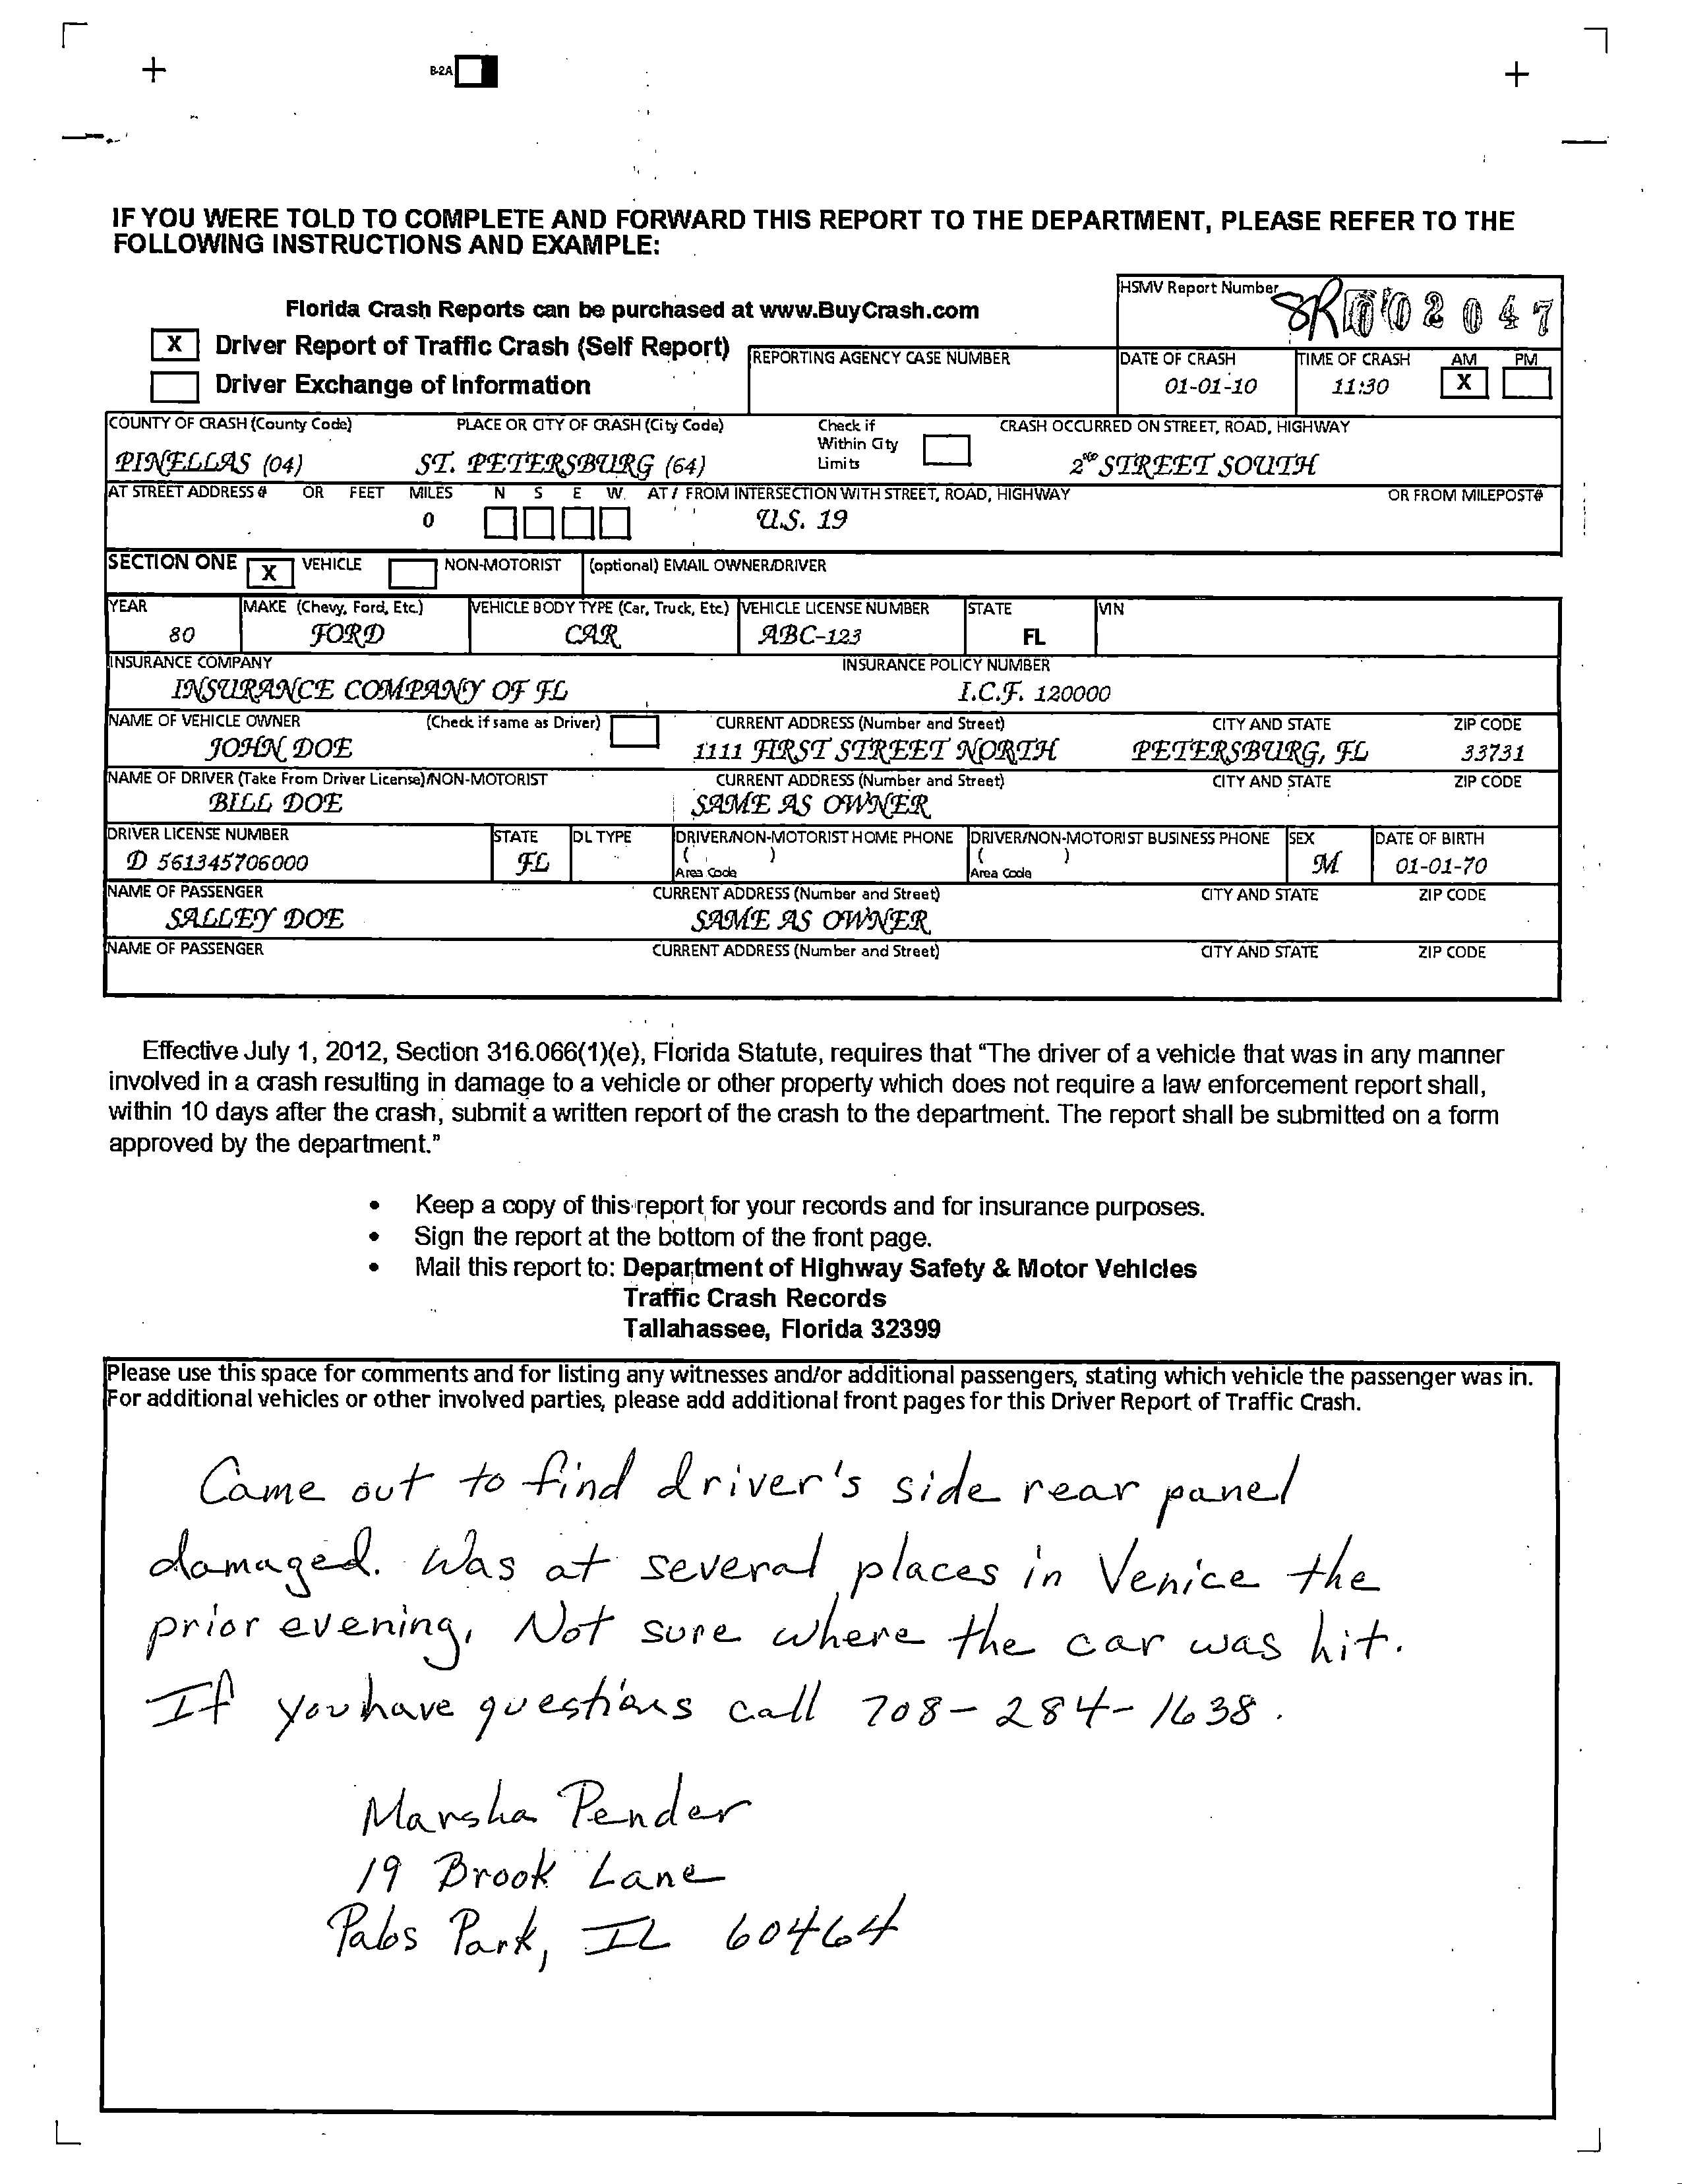 B-2A
IF YOU WERE TOLD TO COMPLETE AND FORWARD THIS REPORT TO THE DEPARTMENT, PLEASE REFER TO THE
FOLLOWING INSTRUCTIONS AND EXAMPLE:
Florida Crash Reports can be purchased at www.BuyCrash.com
HSMV Report Number 8R 002047
X Driver Report of Traffic Crash (Self Report)
Driver Exchange of Information
REPORTING AGENCY CASE NUMBER
DATE OF CRASH TIME OF CRASH AM PM
01-01-10 11:30 X
COUNTY OF CRASH (County Code) PLACE OR CITY OF CRASH (City Code) Check if Within City Limits CRASH OCCURRED ON STREET, ROAD, HIGHWAY
PINELLAS (04) ST. PETERSBURG (64) STREET SOUTH
AT STREET ADDRESS # OR FEET MILES N S E W AT / FROM INTERSECTION WITH STREET, ROAD, HIGHWAY OR FROM MILEPOST#
0 U.S. 19
SECTION ONE X VEHICLE NON-MOTORIST (optional) EMAIL OWNER/DRIVER
YEAR MAKE (Chevy, Ford, Etc.) VEHICLE BODY TYPE (Car, Truck, Etc.) VEHICLE LICENSE NUMBER STATE VIN
80 FORD CAR ABC-123 FL
INSURANCE COMPANY INSURANCE POLICY NUMBER
INSURANCE COMPANY OF FL I.C.F. 120000
NAME OF VEHICLE OWNER (Check if same as Driver) CURRENT ADDRESS (Number and Street) CITY AND STATE ZIP CODE
JOHN DOE 1111 FIRST STREET NORTH PETERSBURG, FL 33731
NAME OF DRIVER (Take From Driver License)/NON-MOTORIST CURRENT ADDRESS (Number and Street) CITY AND STATE ZIP CODE
BILL DOE SAME AS OWNER
DRIVER LICENSE NUMBER STATE DL TYPE DRIVER/NON-MOTORIST HOME PHONE DRIVER/NON-MOTORIST BUSINESS PHONE SEX DATE OF BIRTH
D 561345706000 FL ( ) ( ) M 01-01-70
Area Code Area Code
NAME OF PASSENGER CURRENT ADDRESS (Number and Street) CITY AND STATE ZIP CODE
SALLEY DOE SAME AS OWNER
NAME OF PASSENGER CURRENT ADDRESS (Number and Street) CITY AND STATE ZIP CODE
Effective July 1, 2012, Section 316.066(1)(e), Florida Statute, requires that “The driver of a vehicle that was in any manner
involved in a crash resulting in damage to a vehicle or other property which does not require a law enforcement report shall,
within 10 days after the crash, submit a written report of the crash to the department. The report shall be submitted on a form
approved by the department.”
• Keep a copy of this report for your records and for insurance purposes.
• Sign the report at the bottom of the front page.
• Mail this report to: Department of Highway Safety & Motor Vehicles
Traffic Crash Records
Tallahassee, Florida 32399
Please use this space for comments and for listing any witnesses and/or additional passengers, stating which vehicle the passenger was in.
For additional vehicles or other involved parties, please add additional front pages for this Driver Report of Traffic Crash.
Came out to find driver's side rear panel
damaged. Was at several places in Venice the
prior evening. Not sure where the car was hit.
If you have questions call 708-284-1638.
Marsha Pender
19 Brook Lane
Palos Park, IL 60464